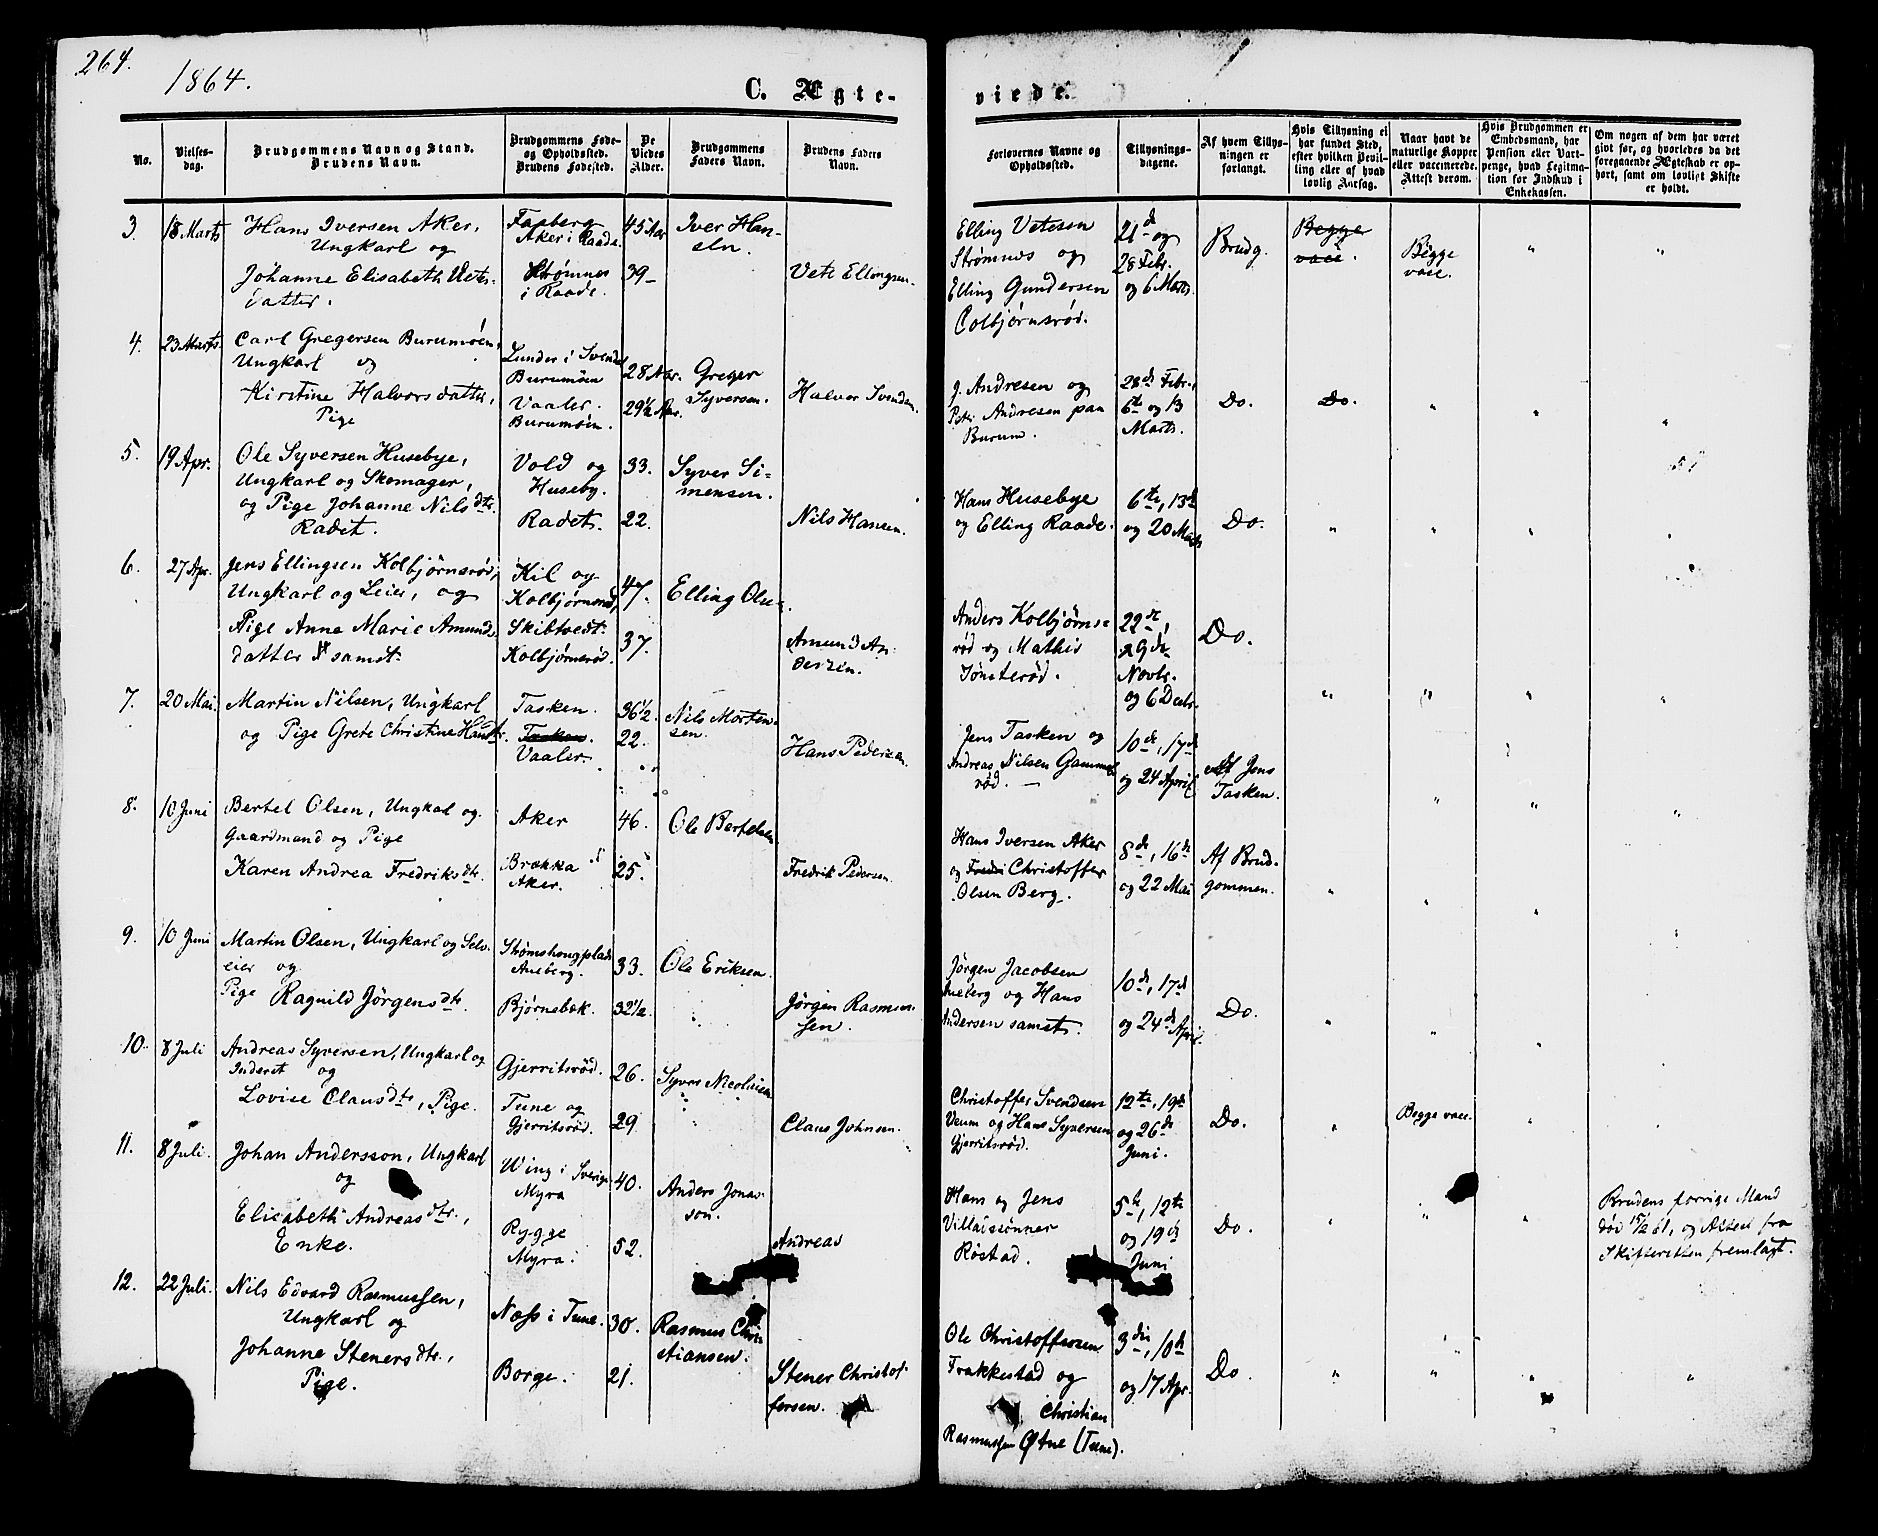 264.
1864.
C. Ægte-
viede.
No.
Vielses-
dag.
Brudgommens Navn og Stand.
Brudens Navn.
Brudgommens Føde-
og Opholdssted.
Brudens Fødested.
De
Viedes
Alder.
Brudgommens
Faders Navn.
Brudens Faders
Navn.
Forlovernes Navne og
Opholdssted.
Tillysnings-
dagene.
Af hvem Tillys-
ningen er
forlangt.
Hvis Tillysning ei
har fundet Sted,
efter hvilken Bevil-
ling eller af hvad
lovlig Aarsag.
Naar havt de
naturlige Kopper
eller vaccinerede.
Attest derom.
Hvis Brudgommen er
Embedsmand, har
Pension eller Vart-
penge, hvad Legitima-
tion for Indskud i
Enkekassen.
Om nogen af dem har været
givt før, og hvorledes da det
foregaaende Ægteskab er op-
hørt, samt om lovligt Skifte
er holdt.
3. 18 Marts
Hans Iversen Aker,
Ungkarl og
Johanne Elisabeth Vetes-
datter.
Aker i Raade.
Strømnes
i Raade.
45 Aar
39 –
Iver Han-
sen
Vete Ellingsen
Elling Vetesen
Strømnes og
Elling Gundersen
Colbjørnsrød.
21de og
28 Febr.
og 6 Marts.
Brudg.
Begge
vacc.
Begge
vacc.
"
"
4. 23 Marts.
Carl Gregersen Burumøen,
Ungkarl og
Kirstine Halvorsdatter,
Pige
Lunder i Svendal
Burumøen
Vaaler.
Burumøen.
28 Aar.
29½ Aar.
Greger
Syversen.
Halvor Svendsen.
J. Andresen og
Petr. Andresen paa
Burum.
28de Febr.,
6te og 13
Marts.
Do.
Do.
"
"
"
5. 19 Apr.
Ole Syversen Husebye,
Ungkarl og Skomager,
og Pige Johanne Nilsdtr.
Radet.
Vold og
Huseby.
Radet.
33.
22.
Syver Si-
mensen.
Nils Hansen.
Hans Husebye
og Elling Raade.
6te, 13de
og 20 Marts
Do.
"
"
"
"
6. 27 Apr.
Jens Ellingsen Kolbjørnsrød,
Ungkarl og Leier, og
Pige Anne Marie Amunds
datter samst.
Kil og
Kolbjørnsrød,
Skibtvedt.
Kolbjørnsrød.
47.
37.
Elling Olsen.
Amund An-
dersen.
Anders Kolbjørns-
rød og Mathis
Tønsterød.
22de,
29de
Novbr.
og 6 Decbr.
Do.
"
"
"
"
7. 20 Mai.
Martin Nilsen, Ungkarl
og Pige Grete Christine Hansdtr.
Tasken.
Tasken.
Vaaler.
36½.
22.
Nils Morten-
sen.
Hans Pedersen.
Jens Tasken og
Andreas Nilsen Gammel
rød.
10de, 17de
og 24 April
Af Jens
Tasken.
"
"
"
8. 10 Juni
Bertel Olsen, Ungkarl og
Gaardmand og Pige
Karen Andrea Fredriksdtr.
Aker
Brækka
Aker.
46.
25.
Ole Bertelsen
Fredrik Pedersen.
Hans Iversen Aker
og Fredri Christoffer
Olsen Berg.
8de, 16de
og 22 Mai
Af Brud-
gommen.
"
"
"
"
9. 10 Juni
Martin Olsen, Ungkarl og Selv-
eier og
Pige Ragnild Jörgensdtr.
Strømshougplads
Aneberg.
Bjørnebæk.
33.
32½.
Ole Eriksen.
Jörgen Rasmus-
sen.
Jørgen Jacobsen
Aneberg og Hans
Andersen samst.
10de, 17de
og 24de April.
Do.
"
"
"
"
10. 8 Juli
Andreas Syversen, Ungkarl og
Inderst og
Lovise Clausdtr, Pige.
Gjerritsrød.
Tune og
Gjerritsrød.
26.
29
Syver Nicolaisen
Claus Johnsen.
Christoffer Svendsen
Veum og Hans Syversen
Gjerritsrød.
12te, 19de
og 26de
Juni.
Do.
"
Begge vacc.
"
"
11. 8 Juli.
Johan Andersson, Ungkarl
og
Elisabeth Andreasdtr.,
Enke.
Wing i Sverige
Myra
Rygge
Myra.
40.
52.
Anders Jonas-
son.
Andreas
Hans og Jens
Röstad.
5te, 12te
og 19de
Juni
Do.
"
"
"
Brudens forrige Mand
død 15/2 61, og Attest fra
Skifteretten fremlagt.
12. 22 Juli.
Nils Edvard Rasmussen,
Ungkarl og
Johanne Stenersdtr.,
Pige.
Næss i Tune.
Borge.
30.
21.
Rasmus Chri-
stiansen.
Stener Christof-
fersen.
Ole Christoffersen
Frakkestad og
Christian
Rasmussen Østne (Tune).
3die, 10de
og 17 Apr.
Do
"
"
"
"